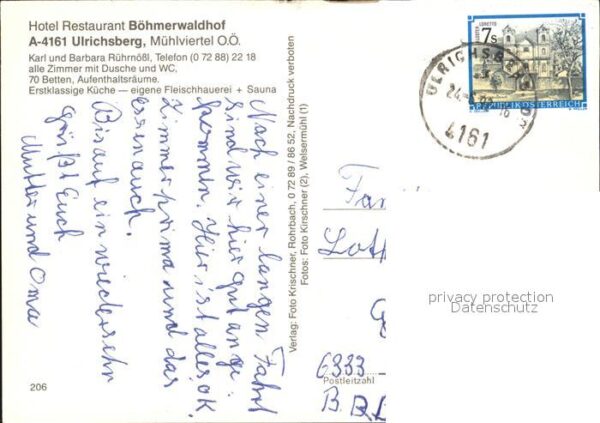 Hotel Restaurant Böhmerwaldhof
A-4161 Ulrichsberg, Mühlviertel O.Ö.
Karl und Barbara Rührnößl, Telefon (0 72 88) 22 18
alle Zimmer mit Dusche und WC,
70 Betten, Aufenthaltsräume.
Erstklassige Küche — eigene Fleischhauerei + Sauna
Nach einer langen Fahrt
sind wir hier gut ange-
kommen. Hier ist alles O.K.
Zimmer prima und das
Essen auch.
Bis auf ein wiedersehn
grüßt Euch
Mutter und Oma
206
Verlag: Foto Krischner, Rohrbach, 0 72 89 / 86 52, Nachdruck verboten
Fotos: Foto Kirschner (2), Welsermühl (1)
7s
STIFT LORETTO
REPUBLIK ÖSTERREICH
ULRICHSBERG
4161
Fam
Loth
6333
Postleitzahl
privacy protection
Datenschutz